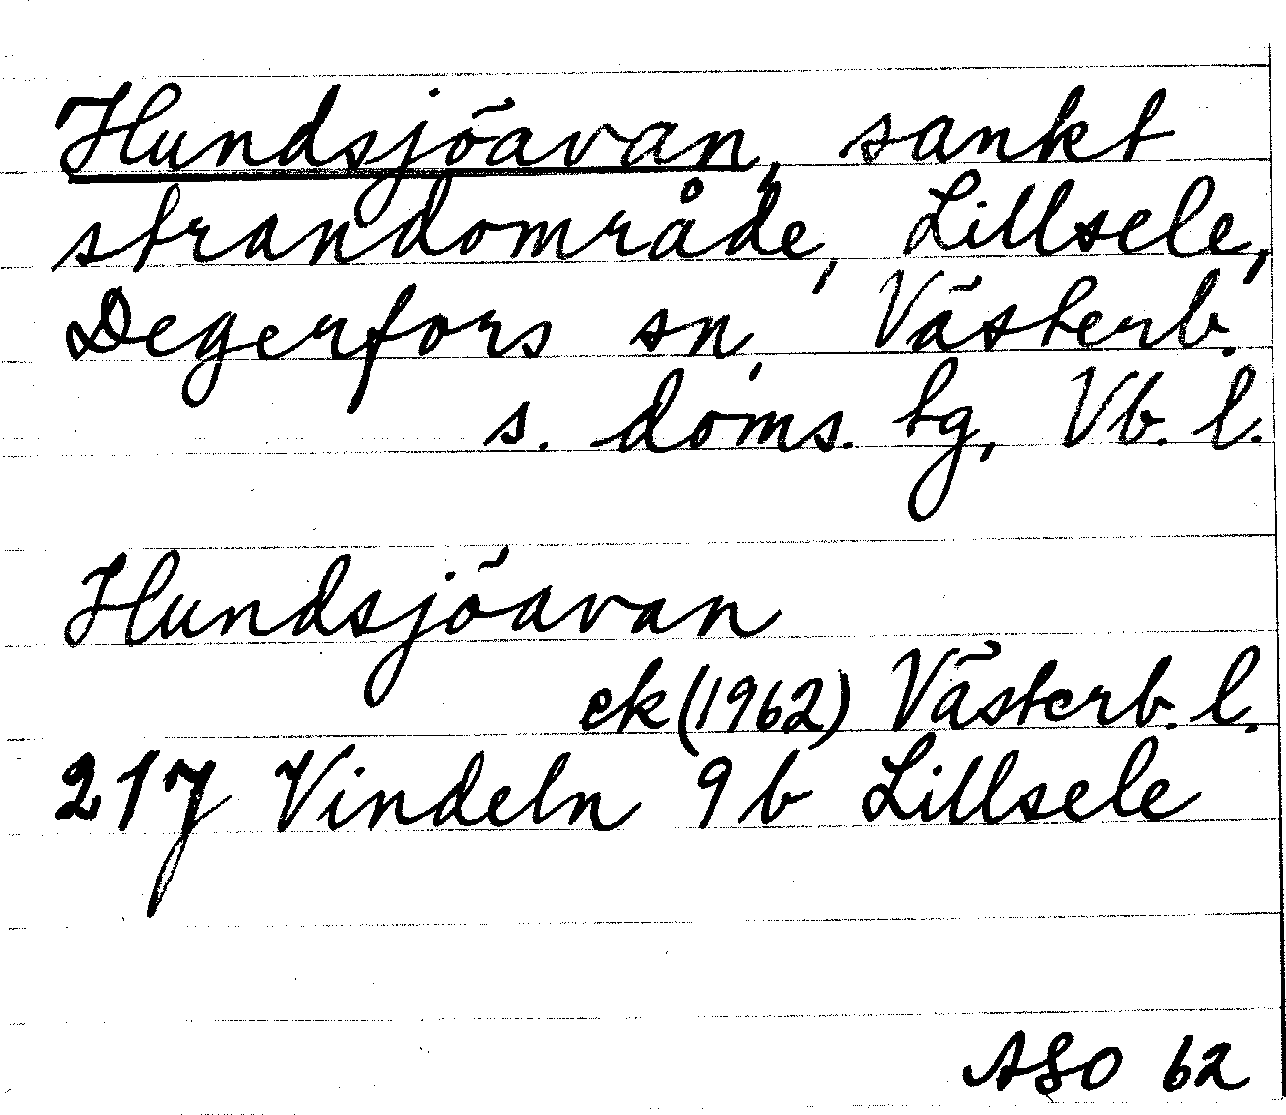 Hundsjöavan, sankt
strandområde, Lillsele,
Degerfors sn, Västerb.
s. doms. tg, Vb. l.
Hundsjöavan
ek (1962) Västerb. l.
217 Vindeln 9b Lillsele
ASO 62